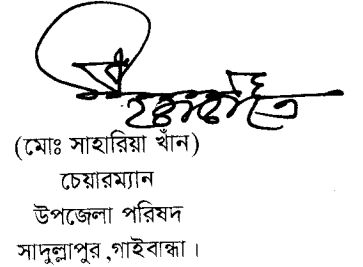 (মোঃ সাহারিয়া খাঁন)
চেয়ারম্যান
উপজেলা পরিষদ
সাদুল্লাপুর ,গাইবান্ধা ।